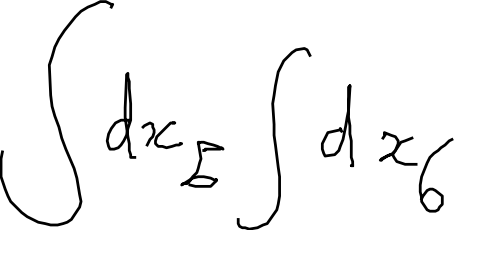 ∫ dx₅ ∫ dx₆